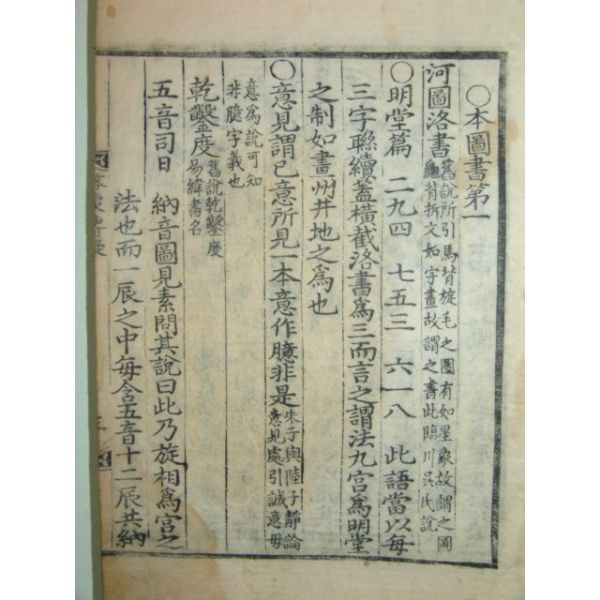 ○本圖書第一
河圖洛書 舊說所引馬背旋毛之圖有如星象故謂之圖
龜背拆文如字畫故謂之書此臨川吳氏說
○明堂篇 二九四 七五三 六一八 此語當以每
三字聯續蓋橫截洛書爲三而言之謂法九宮爲明堂
之制如畫州井地之爲也
○意見謂己意所見一本意作臆非是 朱子與陸子靜論
意見處引誠意毋
意爲說可知
非臆字義也
乾鑿度 舊說乾鑿度
易緯書名
五音司日 納音圖見素問其說曰此乃旋相爲宮之
法也而一辰之中每含五音十二辰共納